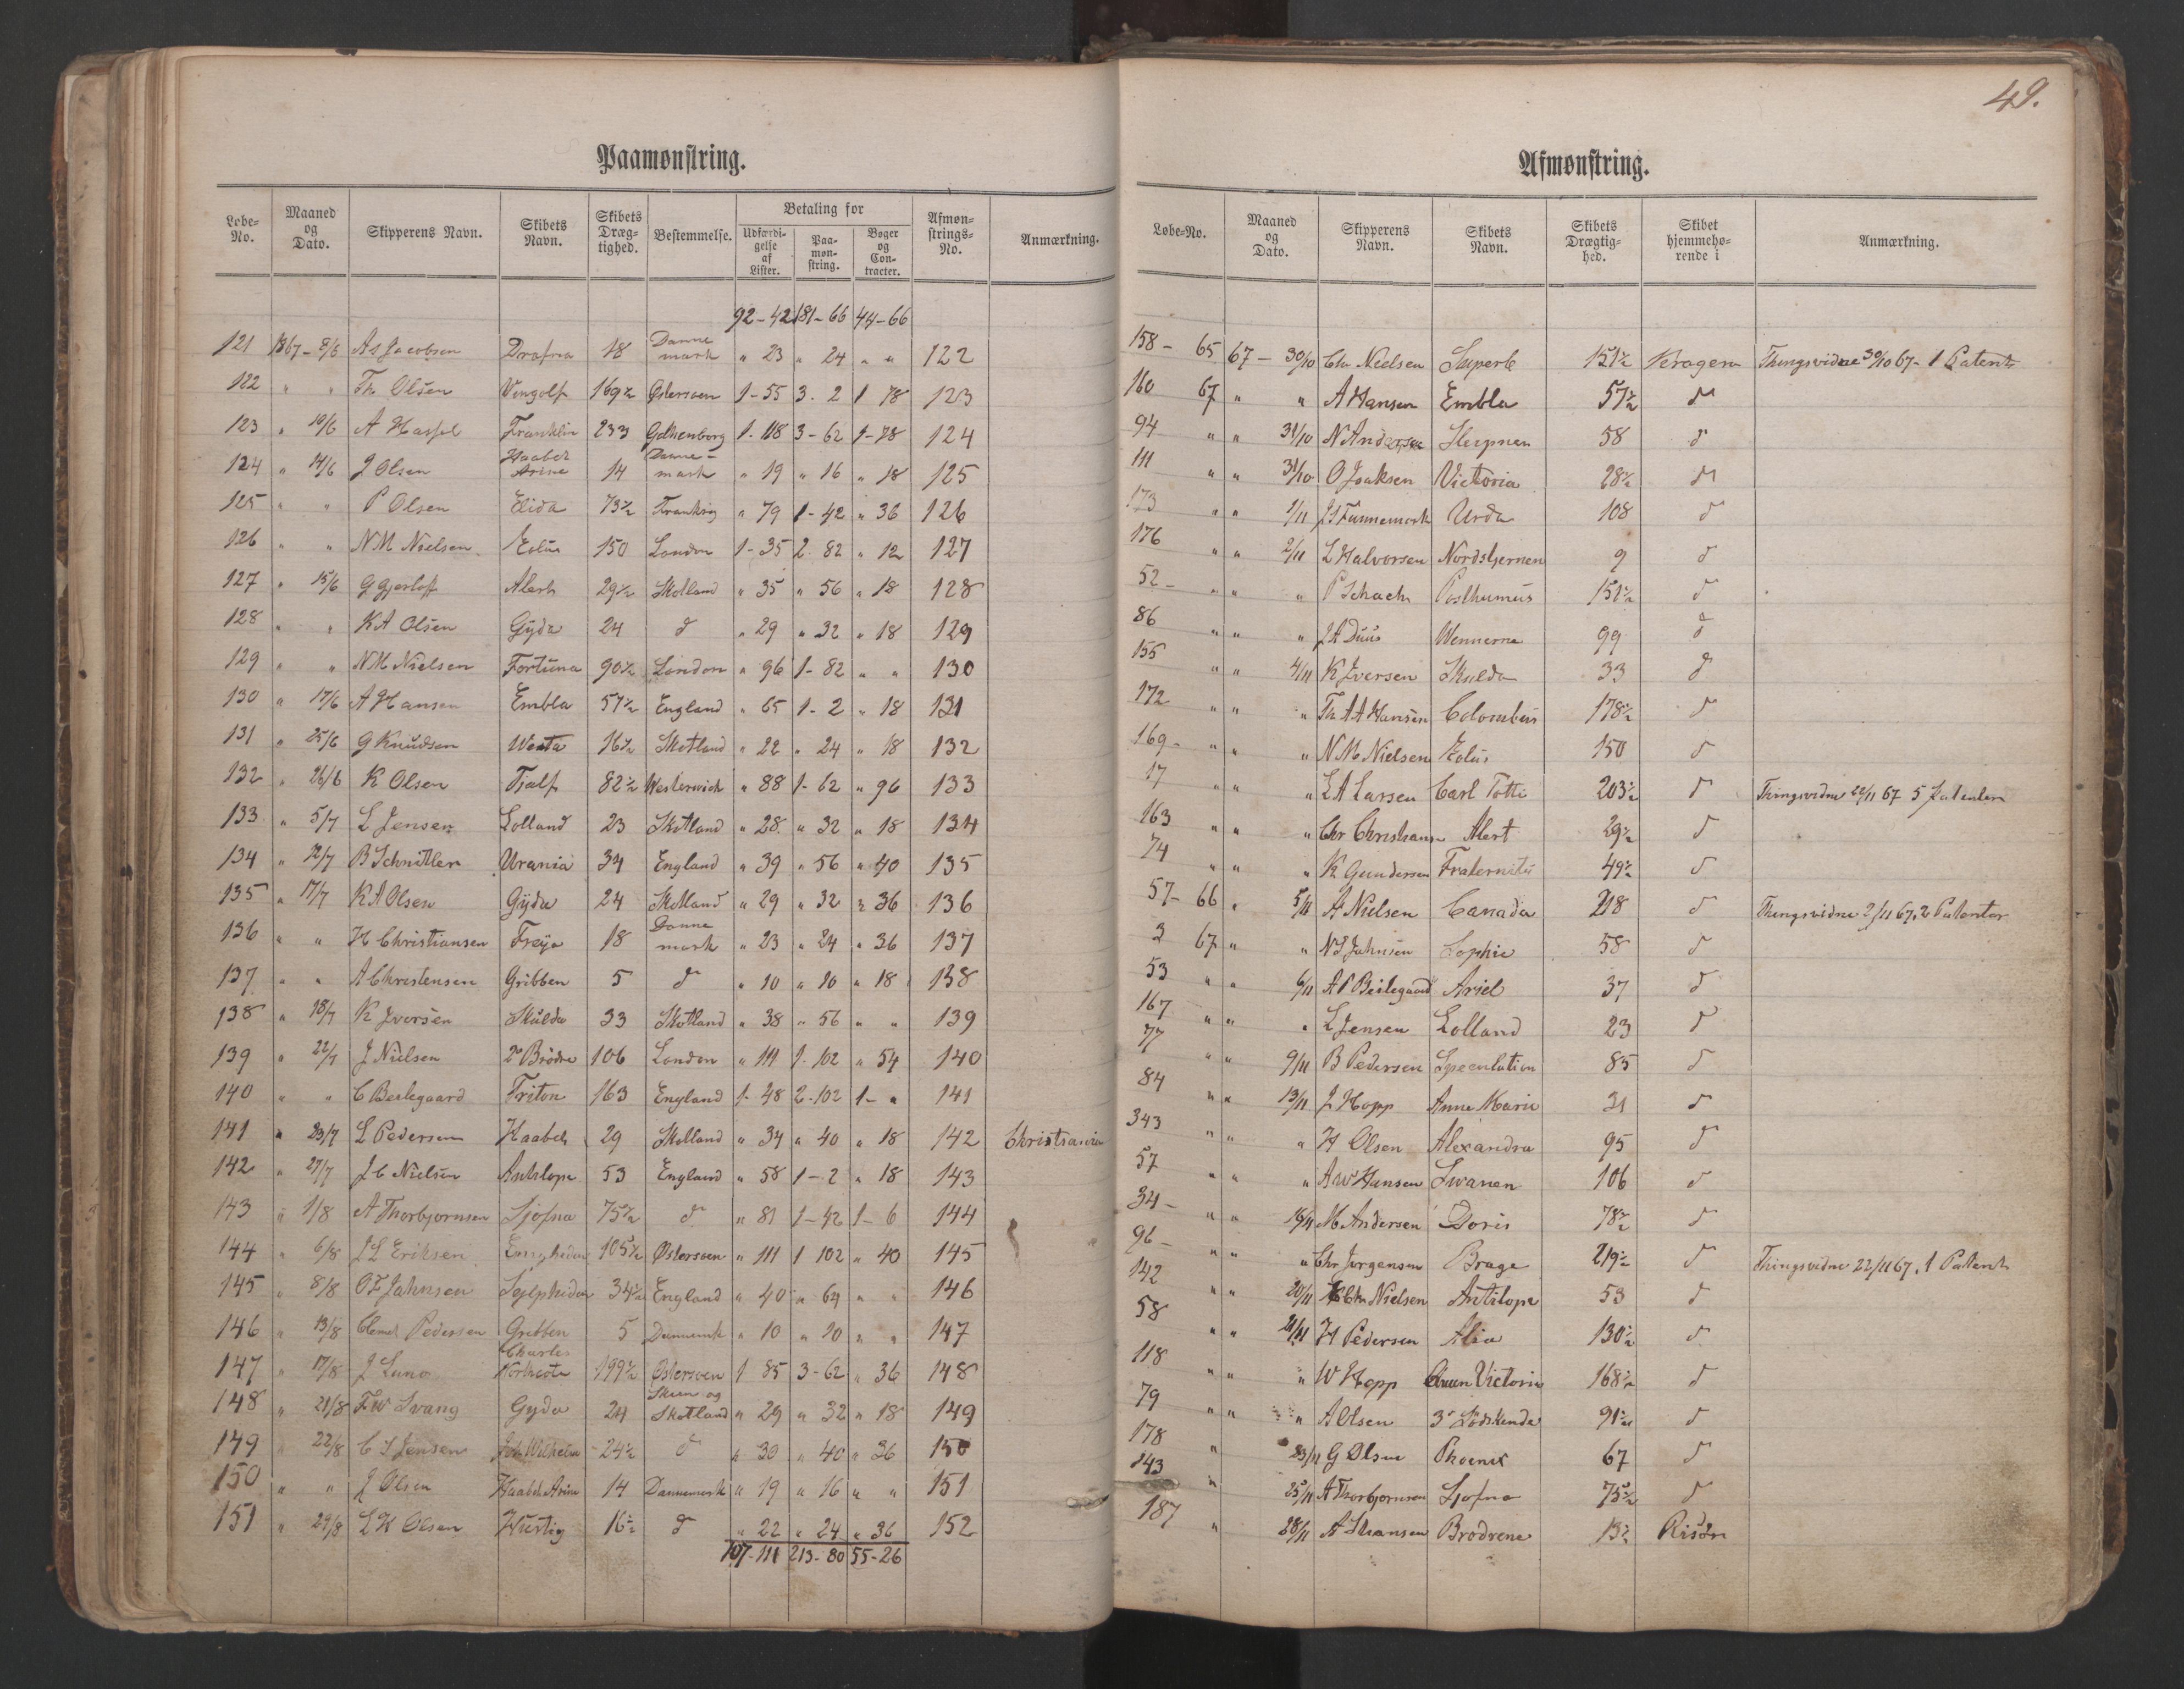 49.
Paamønstring.
Løbe-No. | Maaned og Dato. | Skipperens Navn. | Skibets Navn. | Skibets Drægtighed. | Bestemmelse. | Betaling for | Udfærdigelse af Lister. | Paamønstring. | Bøger og Contracter. | Afmønstrings-No. | Anmærkning.
92-42 181-66 44-66
121 1867- 8/6 As Jacobsen Drafna 18 Danne mark " 23 " 24 " " 122
122 " " Th Olsen Vingolf 169½ Østersøen 1-55 3. 2 1 78 123
123 " 10/6 A Hassel Franklin 233 Gothenborg 1-118 3-62 1-78 124
124 " 14/6 J Olsen Haabet Arine 14 Danne- mark " 19 " 16 " 18 125
125 " " P Olsen Elida 73½ Frankrig " 79 1-42 " 36 126
126 " " NM Nielsen Eolus 150 London 1-35 2 82 " 12 127
127 " 15/6 G Gjerløf Alert 29½ Skotland " 35 " 56 " 18 128
128 " " KA Olsen Gyda 24 d " 29 " 32 " 18 129
129 " " NM Nielsen Fortuna 90½ London " 96 1-82 " " 130
130 " 17/6 A Hansen Embla 57½ England " 65 1-2 " 18 131
131 " 25/6 G Knudsen Westa 16½ Skotland " 22 " 24 " 18 132
132 " 26/6 K Olsen Tjalf 82½ Westerwich " 88 1-62 " 96 133
133 " 5/7 L Jensen Lolland 23 Skotland " 28 " 32 " 18 134
134 " 12/7 B Schnitler Urania 34 England " 39 " 56 " 40 135
135 " 17/7 KA Olsen Gyda 24 Skotland " 29 " 32 " 36 136
136 " " H Christiansen Freya 18 Danne mark " 23 " 24 " 36 137
137 " " A Christensen Gribben 5 d " 10 " 10 " 18 138
138 " 18/7 K Iversen Skulda 33 Skotland " 38 " 56 " " 139
139 " 22/7 J Nielsen 2 Brødre 106 London " 111 1-102 " 54 140
140 " " C Beilegaard Triton 163 England 1-48 2-102 1- " 141
141 " 23/7 L Pedersen Haabet 29 Skotland " 34 " 40 " 18 142 Christiania
142 " 27/7 J C Nielsen Antilope 53 England " 58 1-2 " 18 143
143 " 1/8 A Thorbjørnsen Sjofna 75½ d " 81 1-42 1-6 144
144 " 6/8 Eriksen 105½ Østersøen " 111 1 102 " 40 145
145 " 8/8 Jahnsen Sylphiden 34½ England " 40 " 64 " " 146
146 " 13/8 Pedersen Gribben 5 Danmark " 10 " 10 " " 147
147 " 17/8 J Luno Charles Northcote 199½ Østersøen 1 85 3-62 " 36 148
148 " 21/8 FW Svang Gyda 24 Skien og Skotland " 29 " 32 " 18 149
149 " 22/8 C S Jensen Joh Wilhelm 24½ d " 30 " 40 " 36 150
150 " " J Olsen Haabet Arine 14 Dannemark " 19 " 16 " " 151
151 " 29/8 LK Olsen Hurtig 16½ d " 22 " 24 " 36 152
107-111 213-80 55-26
Afmønstring.
Løbe-No. | Maaned og Dato. | Skipperens Navn. | Skibets Navn. | Skibets Drægtighed. | Skibet hjemmehørende i | Anmærkning.
158- 65 67- 30/10 Chr Nielsen Superb 151½ Kragerø Thingsvidne 30/10 67- 1 Patent
160 67 " " A Hansen Embla 57½ d
94 " " 31/10 N Andersen Sleipner 58 d
111 " " 31/10 O Isaksen Victoria 28½ d
173 " " 1/11 Funnemark Urda 108 d
176 " " 2/11 L Halvorsen Nordstjernen 9 d
52- " " " P Schach Posthumus 151½ d
86 " " " J A Duus Wennerne 99 d
155 " " 4/11 K Iversen Skulda 33 d
172 " " " Th A A Hansen Colombus 178½ d
169- " " " NM Nielsen Eolus 150 d
17 " " " LA Larsen Carl Totti 203½ d Thingsvidne 22/11 67 5 Patenter
163 " " " Chr Christians- Alert 29½ d
74 " " " K Gundersen Fraternitas 49½ d
57- 66 " 5/11 A Nielsen Canada 218 d Thingsvidne 2/11 67, 2 Patenter
3 67 " " NS Jahnsen Sophie 58 d
53 " " 6/11 AP Beilegaard Ariel 37 d
167 " " " L Jensen Lolland 23 d
77 " " 9/11 B Pedersen Speculation 85 d
84 " " 13/11 J Hopp Anne Marie 31 d
343 " " " H Olsen Alexandra 95 d
57 " " " AW Hansen Svanen 106 d
34- " " 16/11 M Andersen Doris 78½ d
96- " " " Chr Jørgensen Brage 219½ d Thingsvidne 22/11 67, 1 Patent
142 " " 20/11 Chr Nielsen Antilope 53 d
58 " " 21/11 H Pedersen Alia 130½ d
118 " " " W Hopp Queen Victoria 168½ d
79 " " " A Olsen 3 Sødskende 91½ d
178 " 23/11 G Olsen Phoenix 67 d
143 " 25/11 A Thorbjørnsen Sjofna 75½ d
187 " 28/11 A Hansen Brødrene 13½ Risør